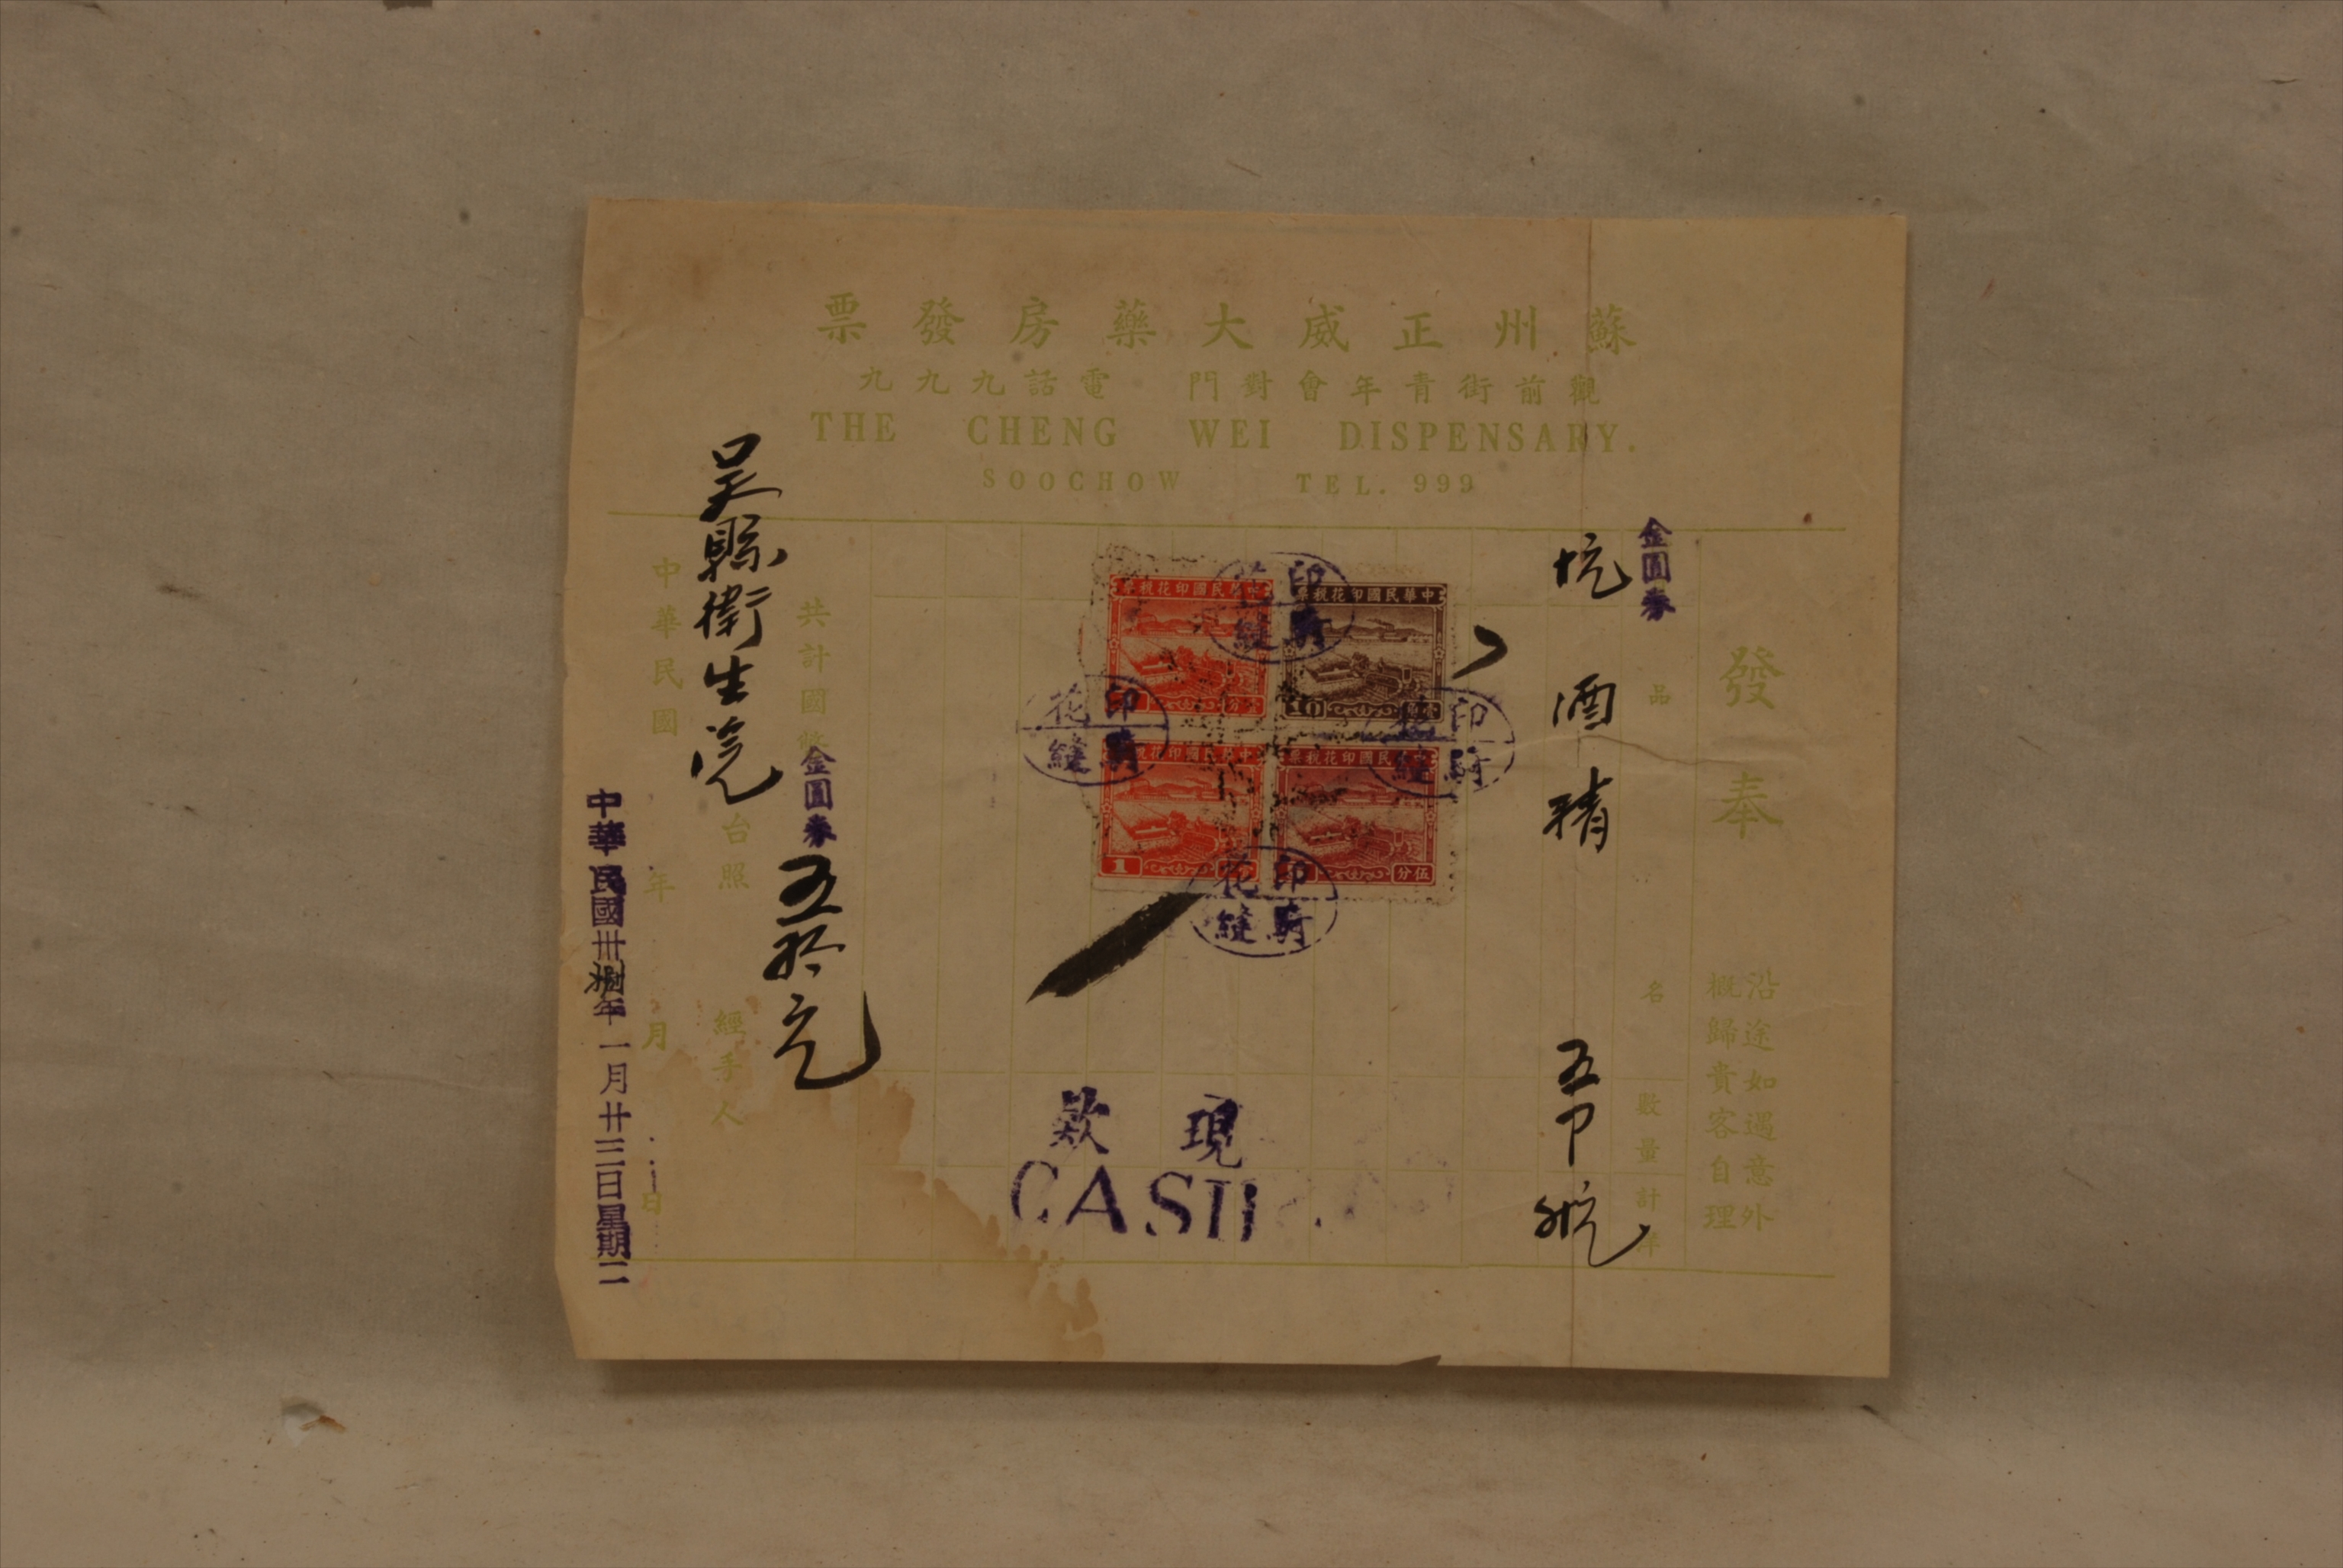 蘇州正威大藥房發票
觀前街青年會對門 電話九九九
THE CHENG WEI DISPENSARY.
SOOCHOW TEL. 999
發奉
沿途如遇意外
概歸貴客自理
金圓券
品名
數量
計洋
酒精
中華民國印花稅票
10
中華民國印花稅票
中華民國印花稅票
伍分
中華民國印花稅票
1
印花
騎縫
印花
騎縫
印花
騎縫
印花
騎縫
現款
CASH
共計國幣
金圓券
五拾元
吳縣衛生院
台照
經手人
中華民國 年 月 日
中華民國卅捌年一月廿三日星期二